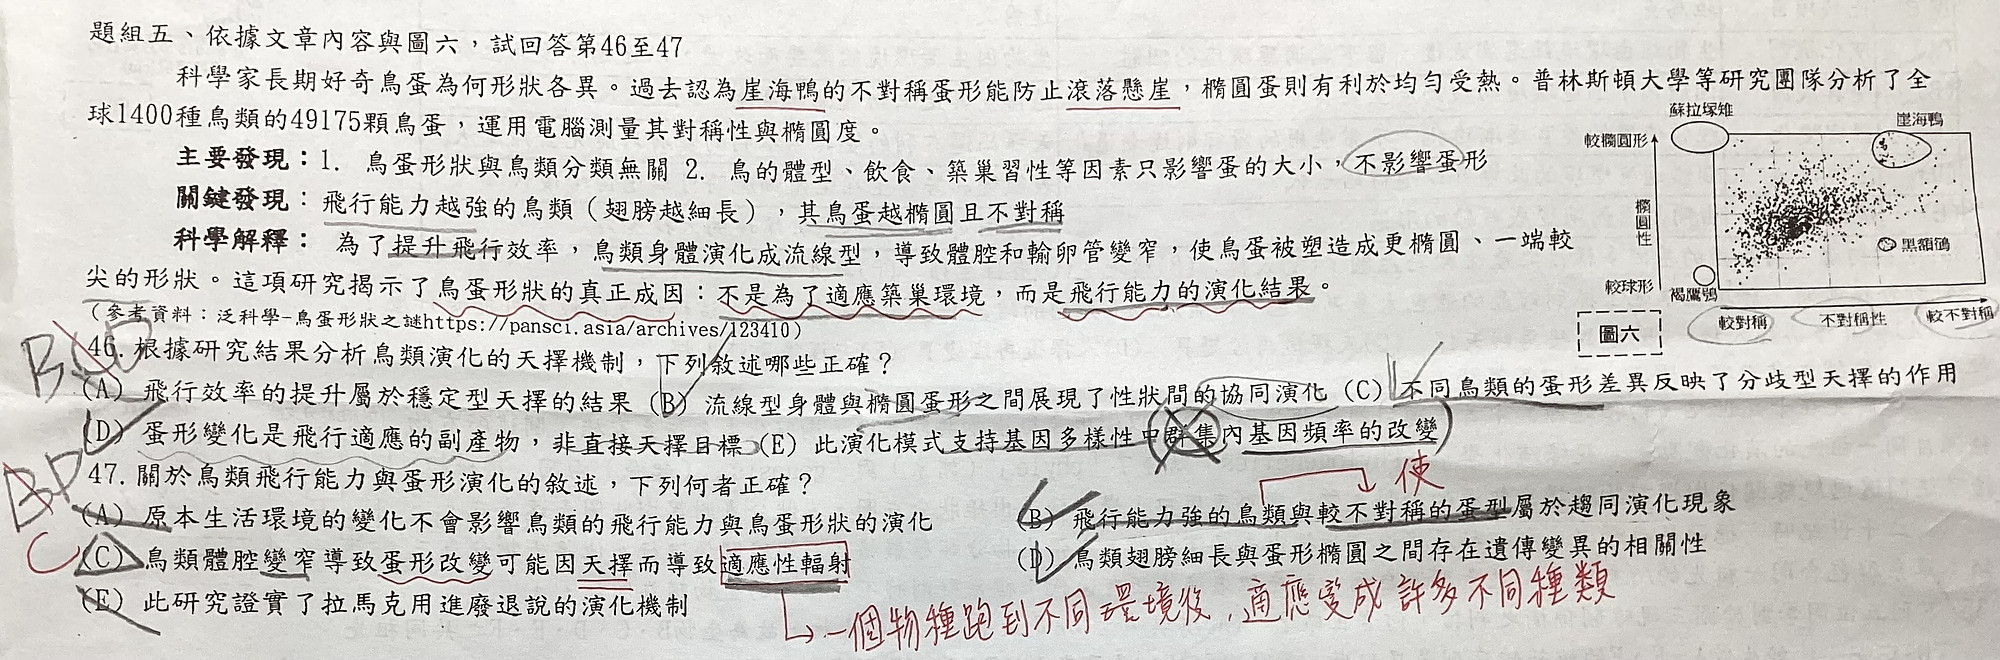 題組五、依據文章內容與圖六，試回答第46至47
科學家長期好奇鳥蛋為何形狀各異。過去認為崖海鴨的不對稱蛋形能防止滾落懸崖，橢圓蛋則有利於均勻受熱。普林斯頓大學等研究團隊分析了全
球1400種鳥類的49175顆鳥蛋，運用電腦測量其對稱性與橢圓度。
主要發現：1. 鳥蛋形狀與鳥類分類無關 2. 鳥的體型、飲食、築巢習性等因素只影響蛋的大小，不影響蛋形
關鍵發現：飛行能力越強的鳥類（翅膀越細長），其鳥蛋越橢圓且不對稱
科學解釋： 為了提升飛行效率，鳥類身體演化成流線型，導致體腔和輸卵管變窄，使鳥蛋被塑造成更橢圓、一端較
尖的形狀。這項研究揭示了鳥蛋形狀的真正成因：不是為了適應築巢環境，而是飛行能力的演化結果。
（參考資料：泛科學-鳥蛋形狀之謎https://pansci.asia/archives/123410）
蘇拉塚雉
崖海鴨
較橢圓形
橢圓性
黑額鴴
較球形
褐鷹鴞
較對稱 不對稱性 較不對稱
圖六
46. 根據研究結果分析鳥類演化的天擇機制，下列敘述哪些正確？
(A) 飛行效率的提升屬於穩定型天擇的結果 (B) 流線型身體與橢圓蛋形之間展現了性狀間的協同演化 (C) 不同鳥類的蛋形差異反映了分歧型天擇的作用
(D) 蛋形變化是飛行適應的副產物，非直接天擇目標 (E) 此演化模式支持基因多樣性中群集內基因頻率的改變
BD
47. 關於鳥類飛行能力與蛋形演化的敘述，下列何者正確？
使
(A) 原本生活環境的變化不會影響鳥類的飛行能力與鳥蛋形狀的演化 (B) 飛行能力強的鳥類與較不對稱的蛋型屬於趨同演化現象
C
(C) 鳥類體腔變窄導致蛋形改變可能因天擇而導致適應性輻射 (D) 鳥類翅膀細長與蛋形橢圓之間存在遺傳變異的相關性
(E) 此研究證實了拉馬克用進廢退說的演化機制
一個物種跑到不同環境後，適應變成許多不同種類